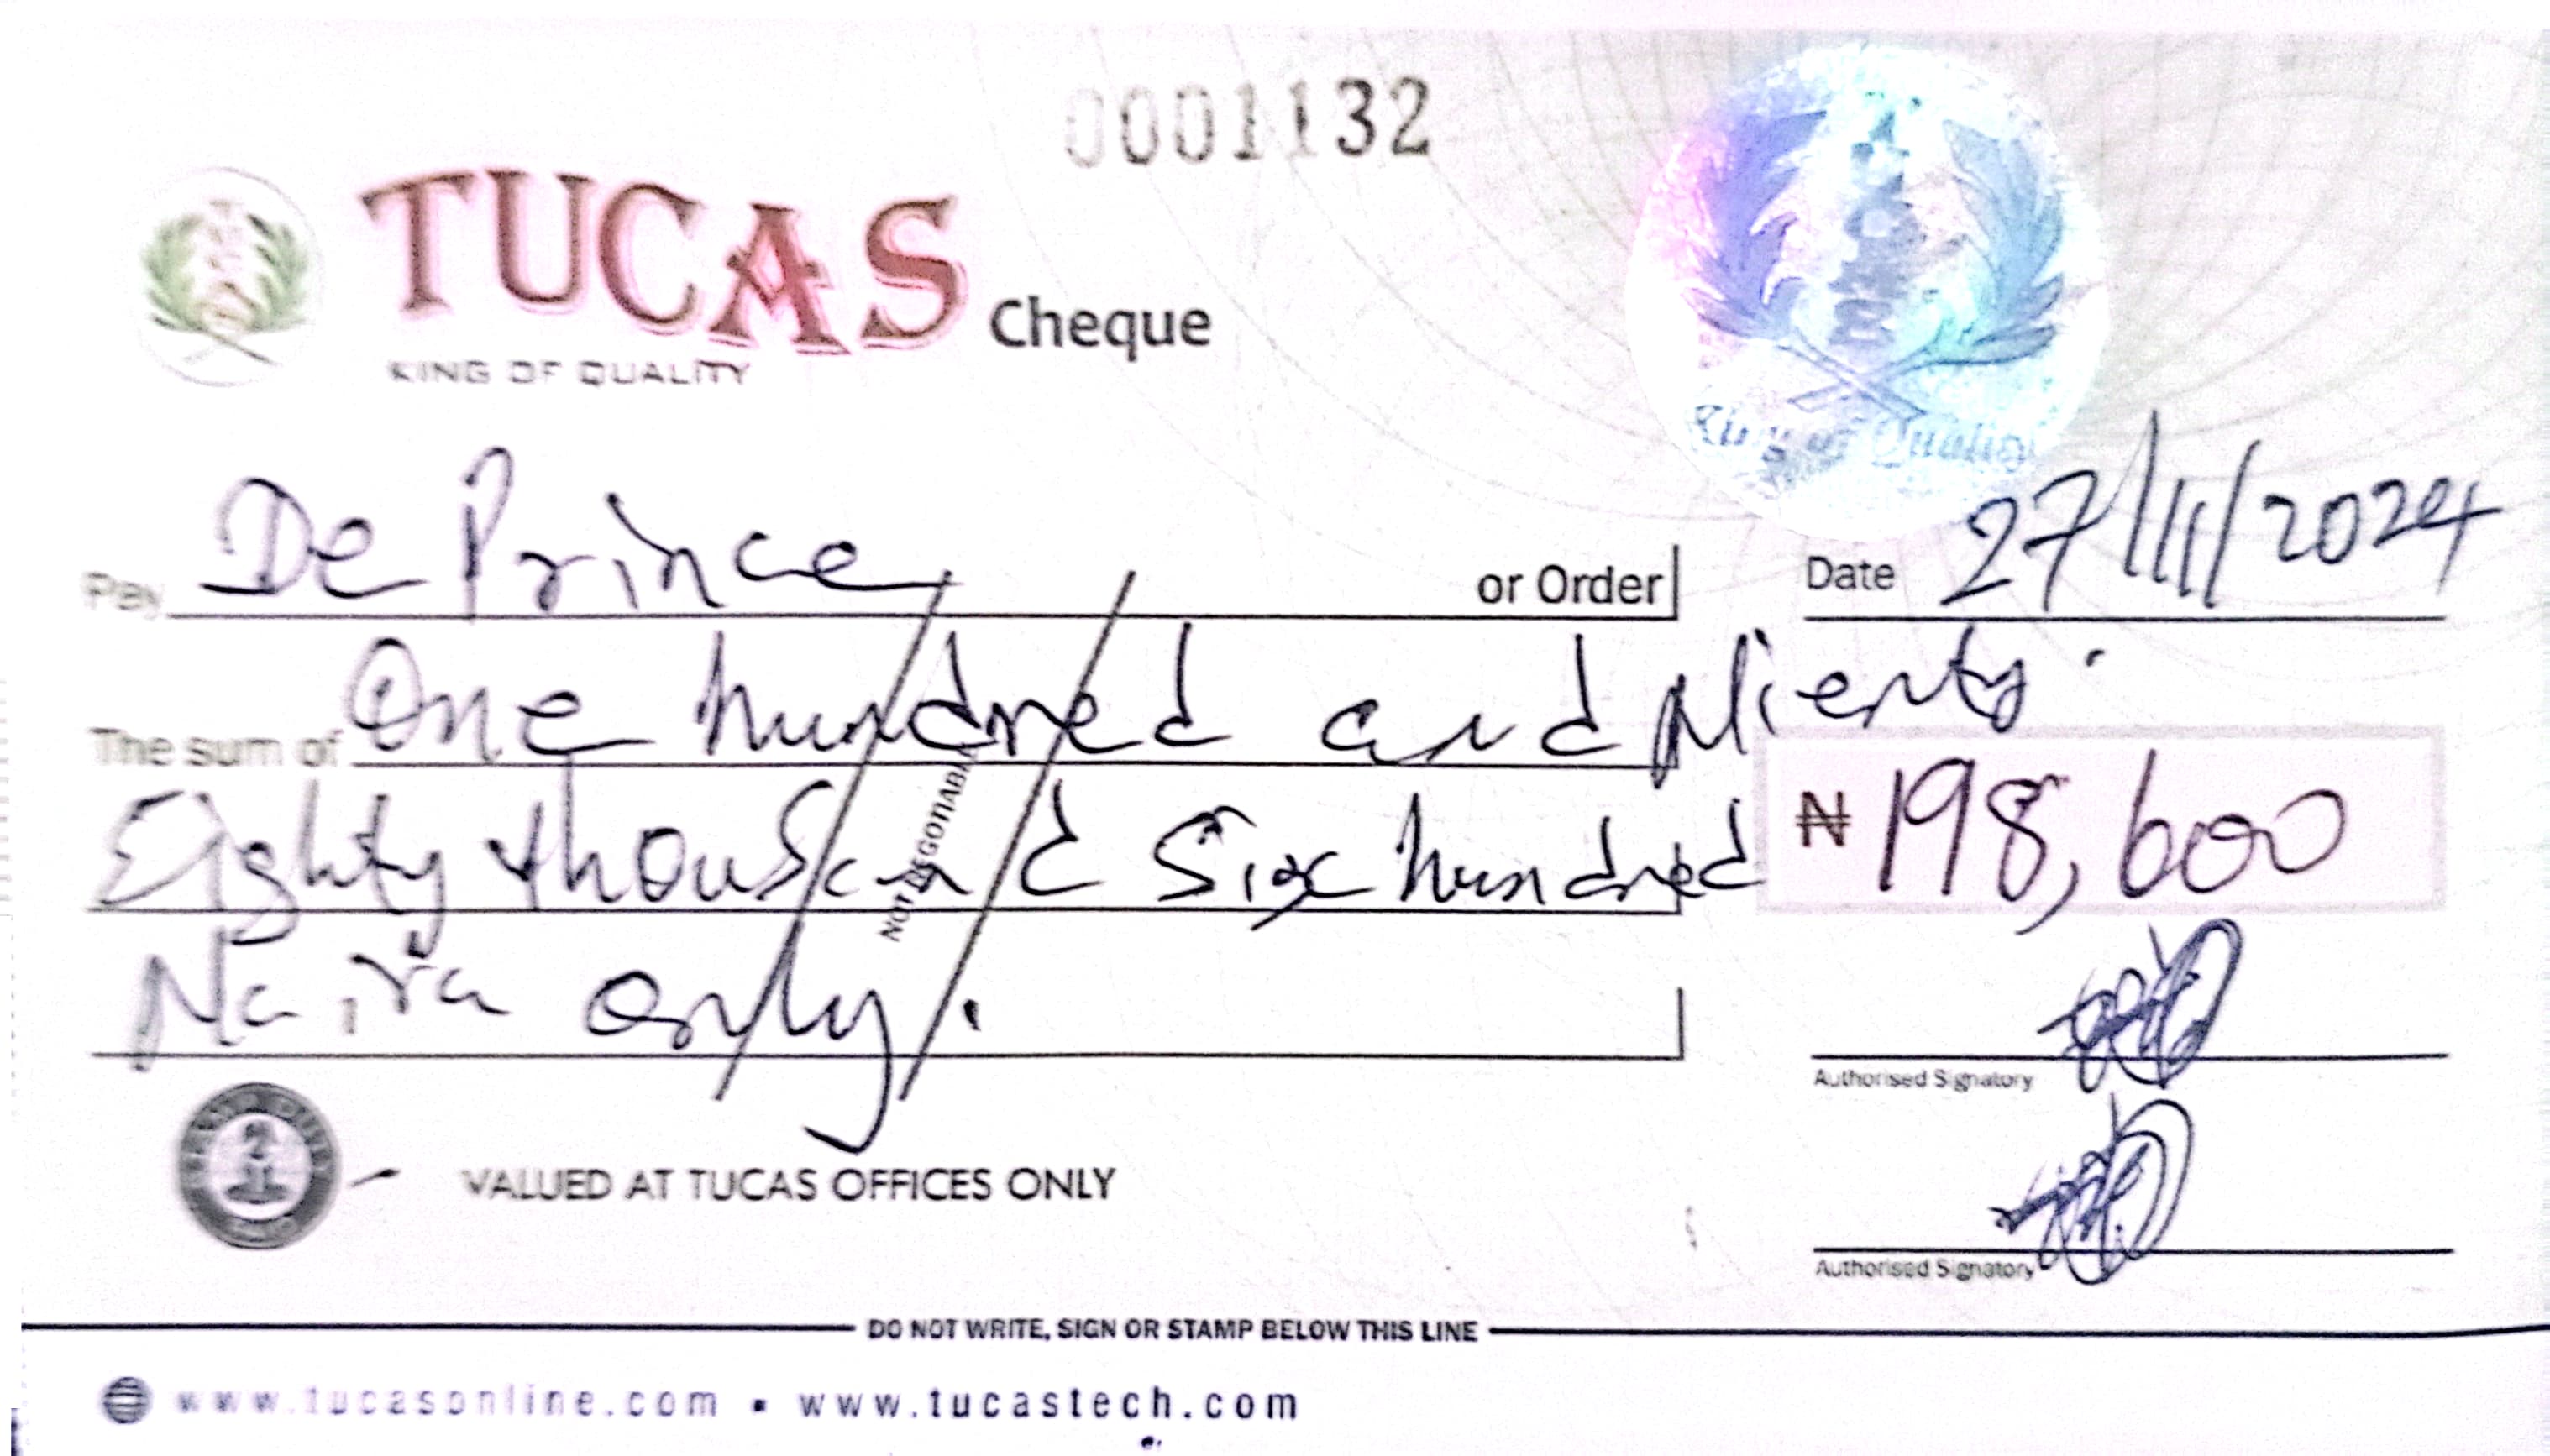 0001132
TUCAS Cheque
KING OF QUALITY
King of Quality
Pay De Prince or Order
Date 27/11/2024
The sum of One hundred and Nienty
Eighty thousand Six hundred
₦ 198,600
Naira only.
NOT NEGOTIABLE
Authorised Signatory
VALUED AT TUCAS OFFICES ONLY
Authorised Signatory
DO NOT WRITE, SIGN OR STAMP BELOW THIS LINE
www.tucasonline.com ▪ www.tucastech.com